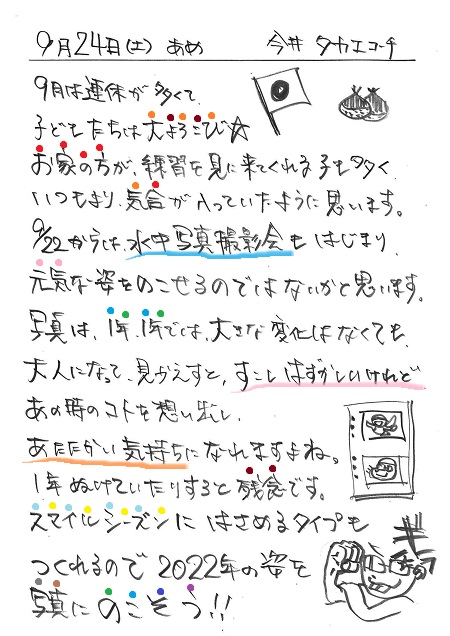 9月24日(土) あめ 今井 タカエコーチ
9月は連休が多くて、
子どもたちは大よろこび☆
お家の方が、練習を見に来てくれる子も多く
いつもより、気合が入っていたように思います。
9/22からは、水中写真撮影会もはじまり、
元気な姿をのこせるのではないかと思います。
写真は、1年、1年では、大きな変化はなくても、
大人になって、見かえすと、すこしはずかしいけれど
あの時のコトを想い出し、
あたたかい気持ちになれますよね。
1年ぬけていたりすると残念です。
スマイルシーズンにはさめるタイプも
つくれるので2022年の姿を
写真にのこそう!!